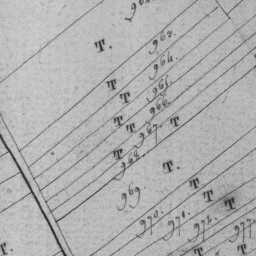 T.
963.
964.
T
T
965
966
T
T
967.
T
T
968.
T.
969.
T
T
T
970.
971.
972.
T
T
T.